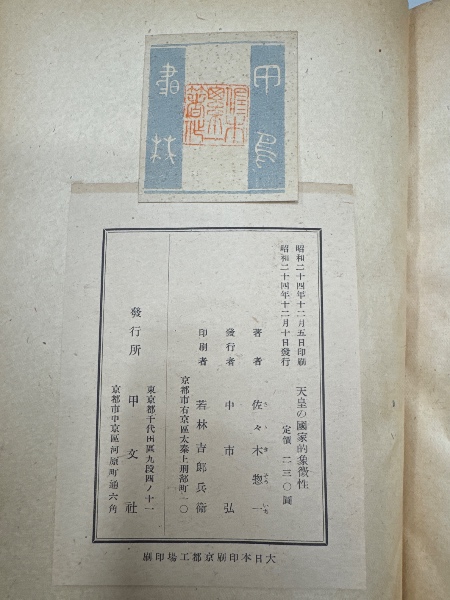 甲鳥
書林
昭和二十四年十二月五日印刷
昭和二十四年十二月十日發行
天皇の國家的象徴性
定價 二三〇圓
著者 佐々木惣一
さ さ き そう いち
發行者 中市弘
印刷者 若林吉郎兵衞
京都市右京區太秦上刑部町一〇
發行所 甲文社
東京都千代田區九段四ノ十一
京都市中京區河原町通六角
大日本印刷京都工場印刷